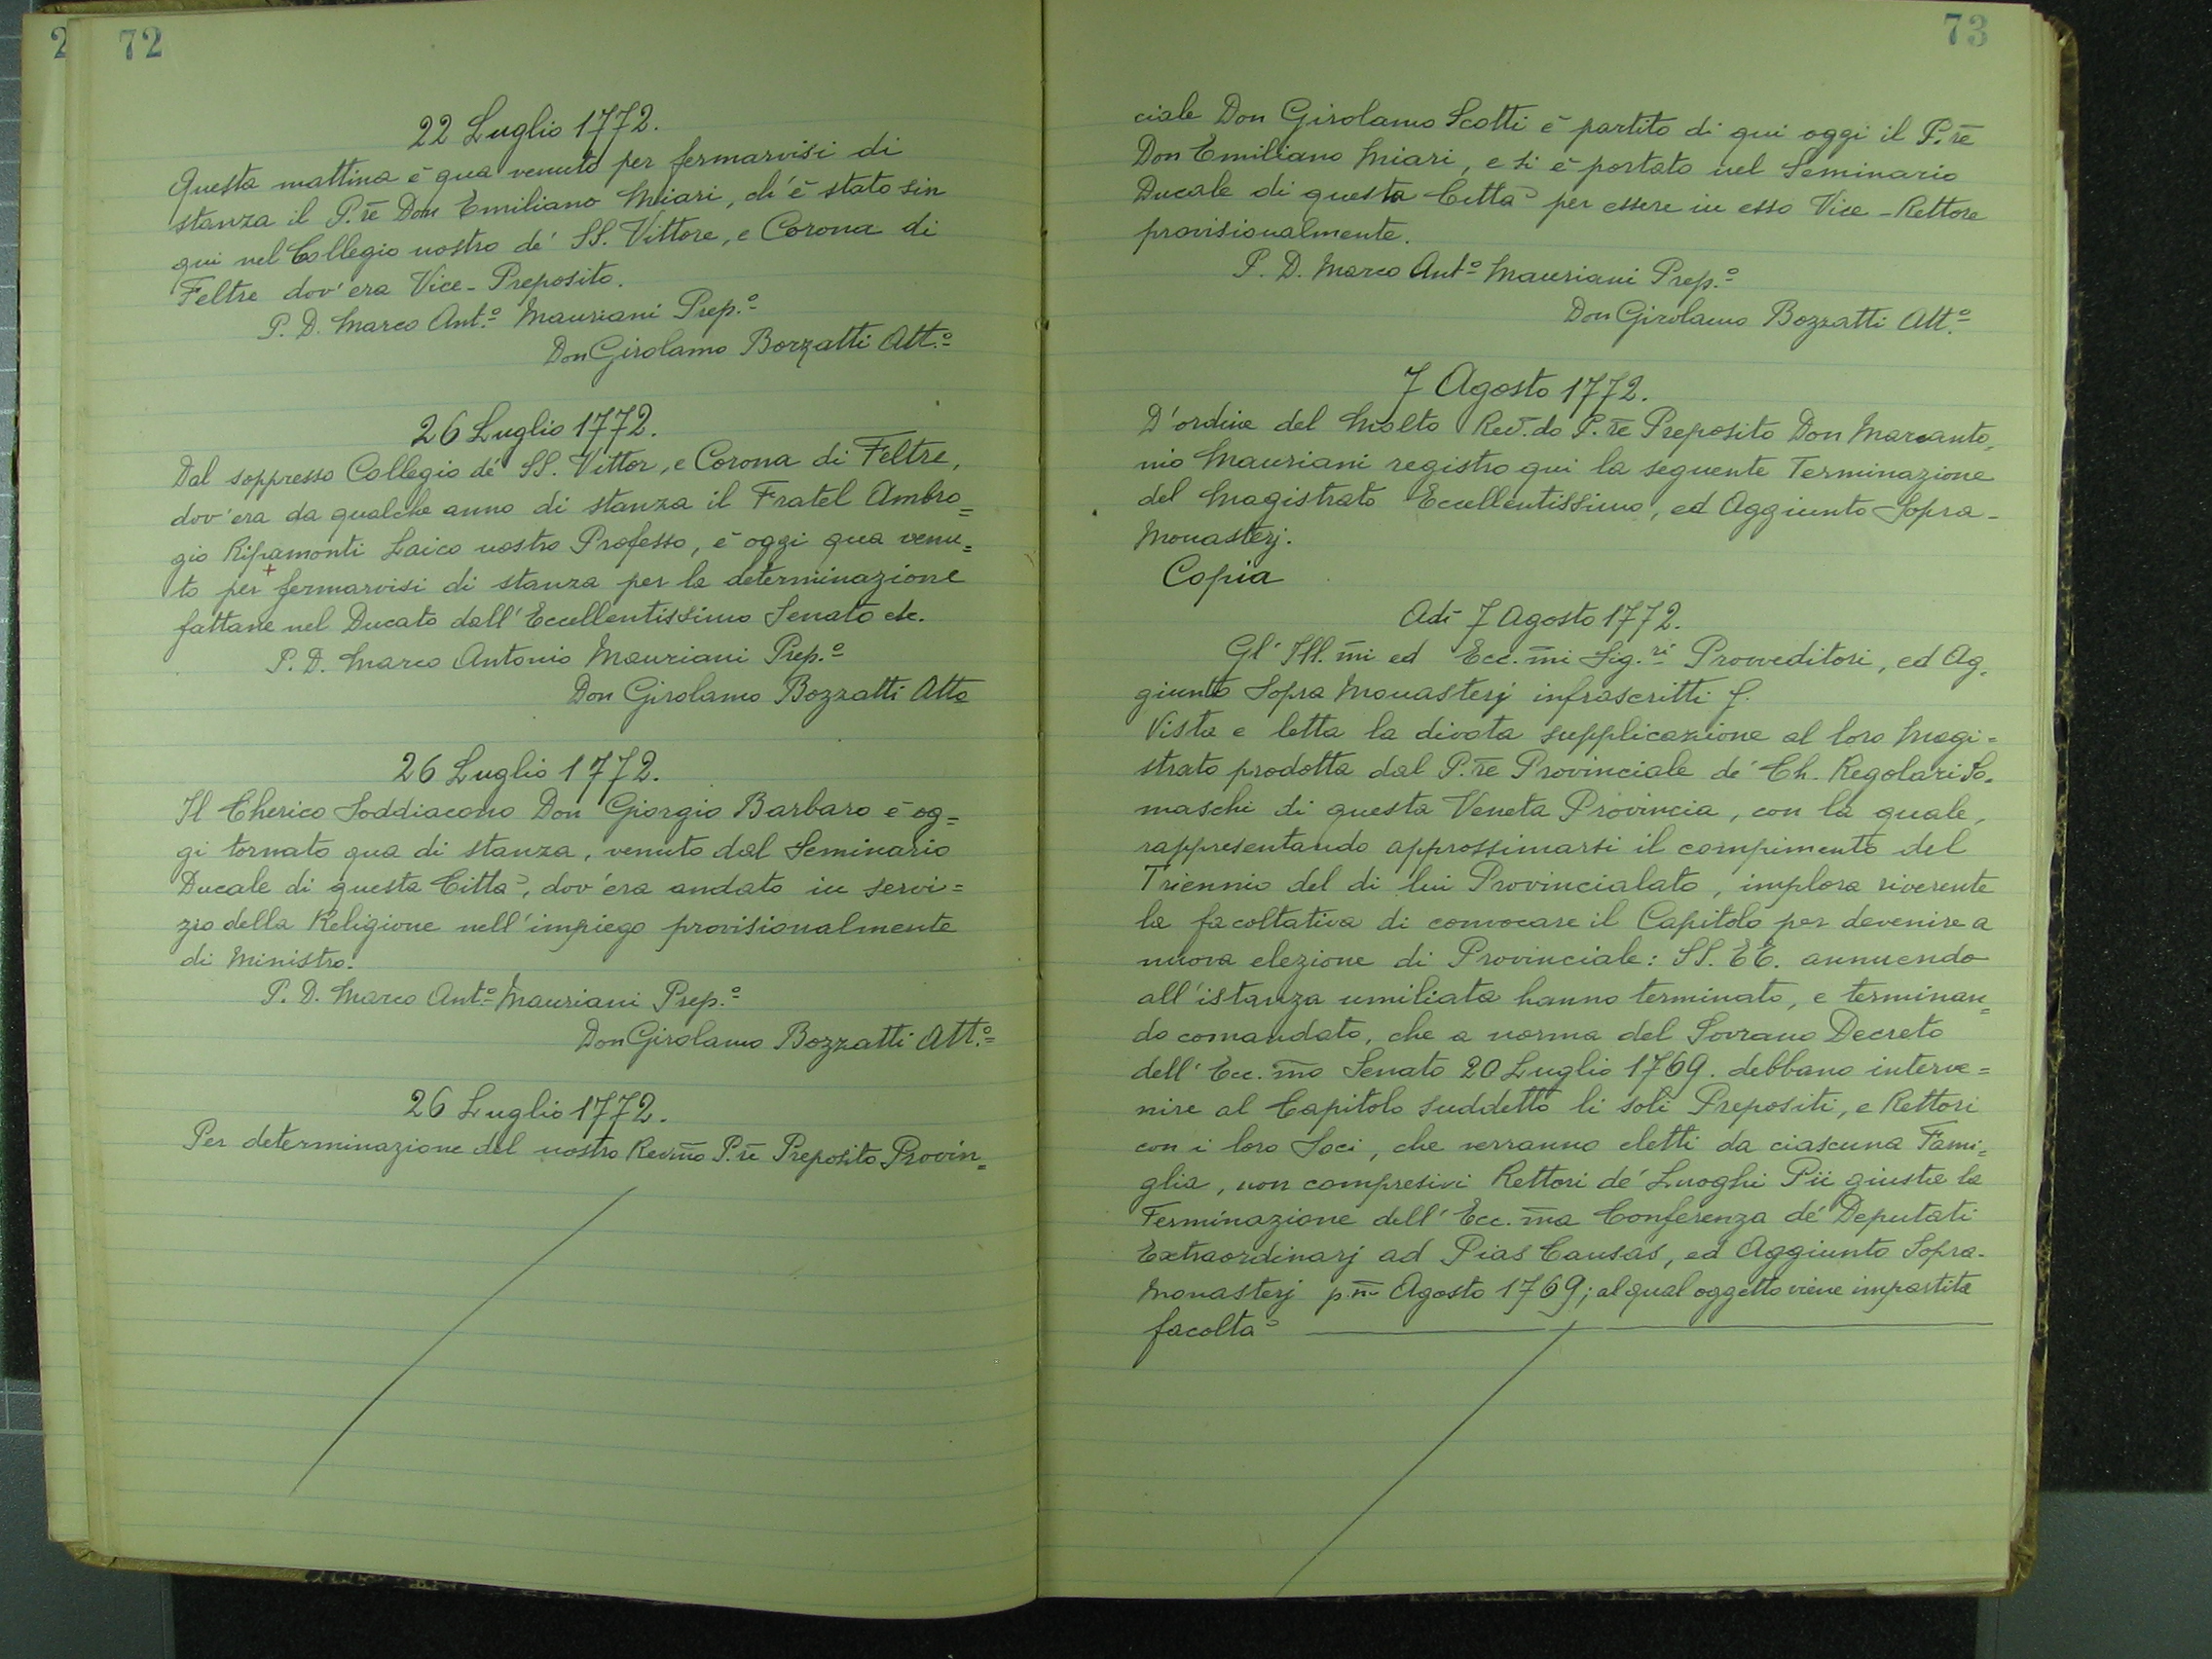 2 72
22 Luglio 1772.
Questa mattina è qua venuto per fermarvisi di
stanza il P.re Don Emiliano Miari, ch'è stato sin
qui nel Collegio nostro de' SS. Vittore, e Corona di
Feltre dov'era Vice-Preposito.
P. D. Marco Ant.º Mauriani Prep.º
Don Girolamo Bozzatti Att.º
26 Luglio 1772.
Dal soppresso Collegio de' SS. Vittor, e Corona di Feltre,
dov'era da qualche anno di stanza il Fratel Ambro=
gio Ripamonti Laico nostro Professo, è oggi qua venu=
to per + fermarvisi di stanza per la determinazione
fattane nel Ducato dall'Eccellentissimo Senato etc.
P. D. Marco Antonio Mauriani Prep.º
Don Girolamo Bozzatti Att.º
26 Luglio 1772.
Il Cherico Soddiacono Don Giorgio Barbaro è og=
gi tornato qua di stanza, venuto dal Seminario
Ducale di questa Città, dov'era andato in servi=
zio della Religione nell'impiego provisionalmente
di Ministro.
P. D. Marco Ant.º Mauriani Prep.º
Don Girolamo Bozzatti Att.º
26 Luglio 1772.
Per determinazione del nostro Revmo P.re Preposito Provin=
73
ciale Don Girolamo Scotti è partito di qui oggi il P.re
Don Emiliano Miari, e si è portato nel Seminario
Ducale di questa Città per essere in esso Vice-Rettore
provisionalmente.
P. D. Marco Ant.º Mauriani Prep.º
Don Girolamo Bozzatti Att.º
7 Agosto 1772.
D'ordine del Molto Rev.do P.re Preposito Don Marcanto=
nio Mauriani registro qui la seguente Terminazione
del Magistrato Eccellentissimo, ed Aggiunto Sopra-
Monasterj.
Copia
Adì 7 Agosto 1772.
Gl'Ill.mi ed Ecc.mi Sig.ri Provveditori, ed Ag=
giunto Sopra Monasterj infrascritti
Vista e letta la divota supplicazione al loro Magi=
strato prodotta dal P.re Provinciale de' Ch. Regolari So=
maschi di questa Veneta Provincia, con la quale,
rappresentando approssimarsi il compimento del
Triennio del di lui Provincialato, implora riverente
la facoltativa di convocare il Capitolo per devenire a
nuova elezione di Provinciale: SS. EE. annuendo
all'istanza umiliata hanno terminato, e terminan=
do comandato, che a norma del Sovrano Decreto
dell'Ecc.mo Senato 20 Luglio 1769. debbano interve=
nire al Capitolo suddetto li soli Prepositi, e Rettori
con i loro Soci, che verranno eletti da ciascuna Fami=
glia, non compresivi Rettori de' Luoghi Pii giusta la
Terminazione dell'Ecc.ma Conferenza de' Deputati
Extraordinarj ad Pias Causas, ed Aggiunto Sopra-
Monasterj p.mo Agosto 1769; al qual oggetto viene impartita
facoltà